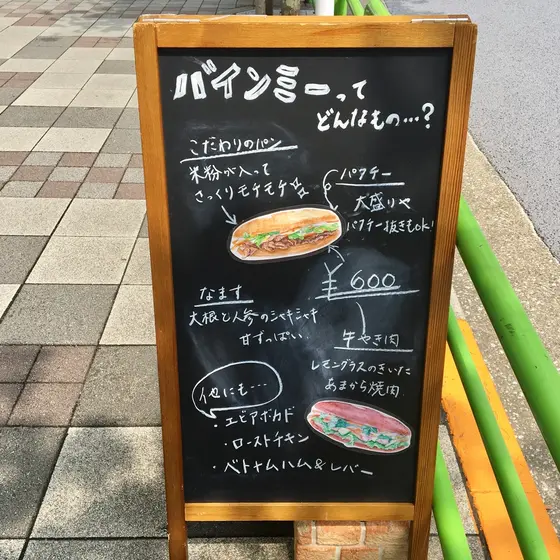 バインミーって
どんなもの…?
こだわりのパン
米粉が入って
さっくりモチモチ
パクチー
大盛りや
パクチー抜きもok!
¥600
なます
大根と人参のシャキシャキ
甘ずっぱい
牛やき肉
レモングラスのきいた
あまから焼肉
他にも…
・エビアボカド
・ローストチキン
・ベトナムハム&レバー